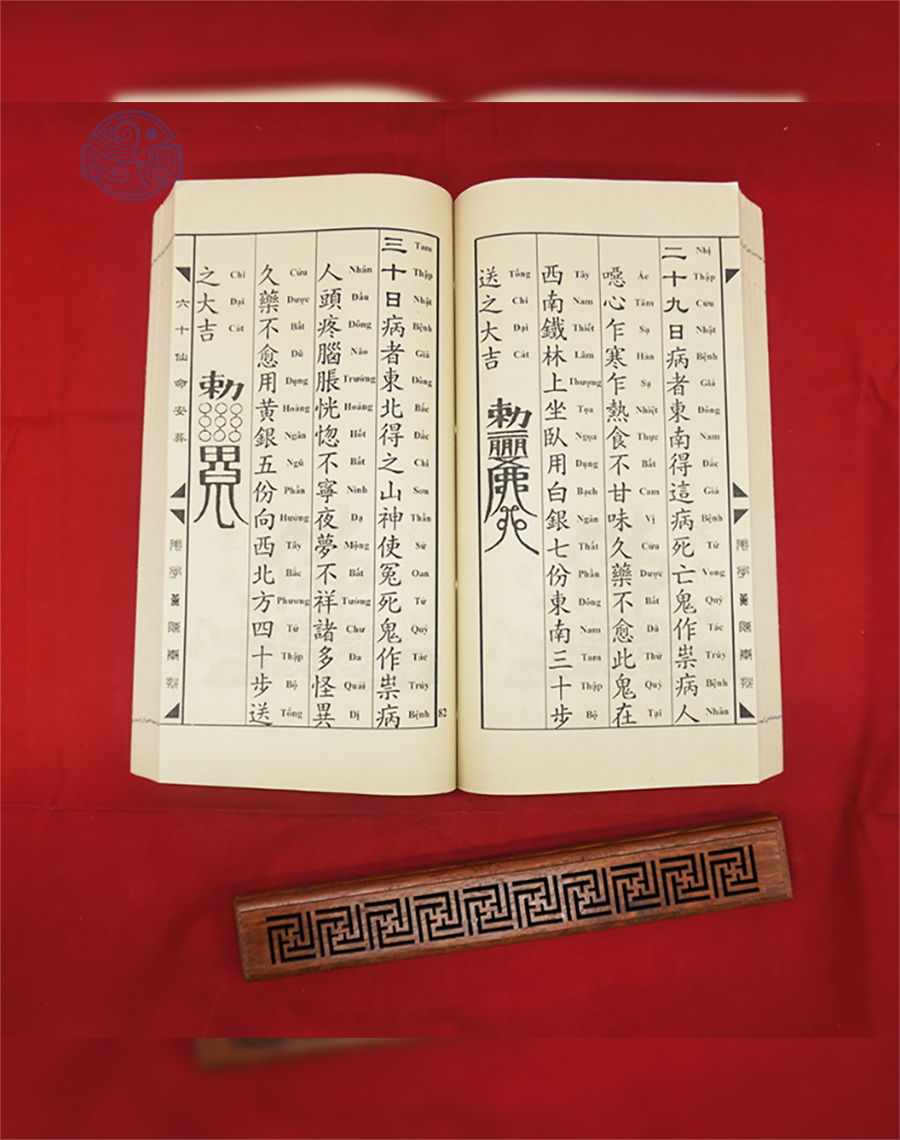 二十九日病者東南得這病死亡鬼作祟病人
Nhị Thập Cửu Nhật Bệnh Giả Đông Nam Đắc Giá Bệnh Tử Vong Quỷ Tác Trủy Bệnh Nhân
噁心乍寒乍熱食不甘味久藥不愈此鬼在
Ác Tâm Sạ Hàn Sạ Nhiệt Thực Bất Cam Vị Cửu Dược Bất Dũ Thử Quỷ Tại
西南鐵林上坐臥用白銀七份東南三十步
Tây Nam Thiết Lâm Thượng Tọa Ngọa Dụng Bạch Ngân Thất Phần Đông Nam Tam Thập Bộ
送之大吉
Tống Chi Đại Cát
勅
三十日病者東北得之山神使冤死鬼作祟病
Tam Thập Nhật Bệnh Giả Đông Bắc Đắc Chi Sơn Thần Sử Oan Tử Quỷ Tác Trủy Bệnh
人頭疼腦脹恍惚不寧夜夢不祥諸多怪異
Nhân Đầu Đông Não Trướng Hoảng Hốt Bất Ninh Dạ Mộng Bất Tường Chư Đa Quái Dị
久藥不愈用黃銀五份向西北方四十步送
Cửu Dược Bất Dũ Dụng Hoàng Ngân Ngũ Phần Hướng Tây Bắc Phương Tứ Thập Bộ Tống
之大吉
Chi Đại Cát
勅
六十仙命安葬
82